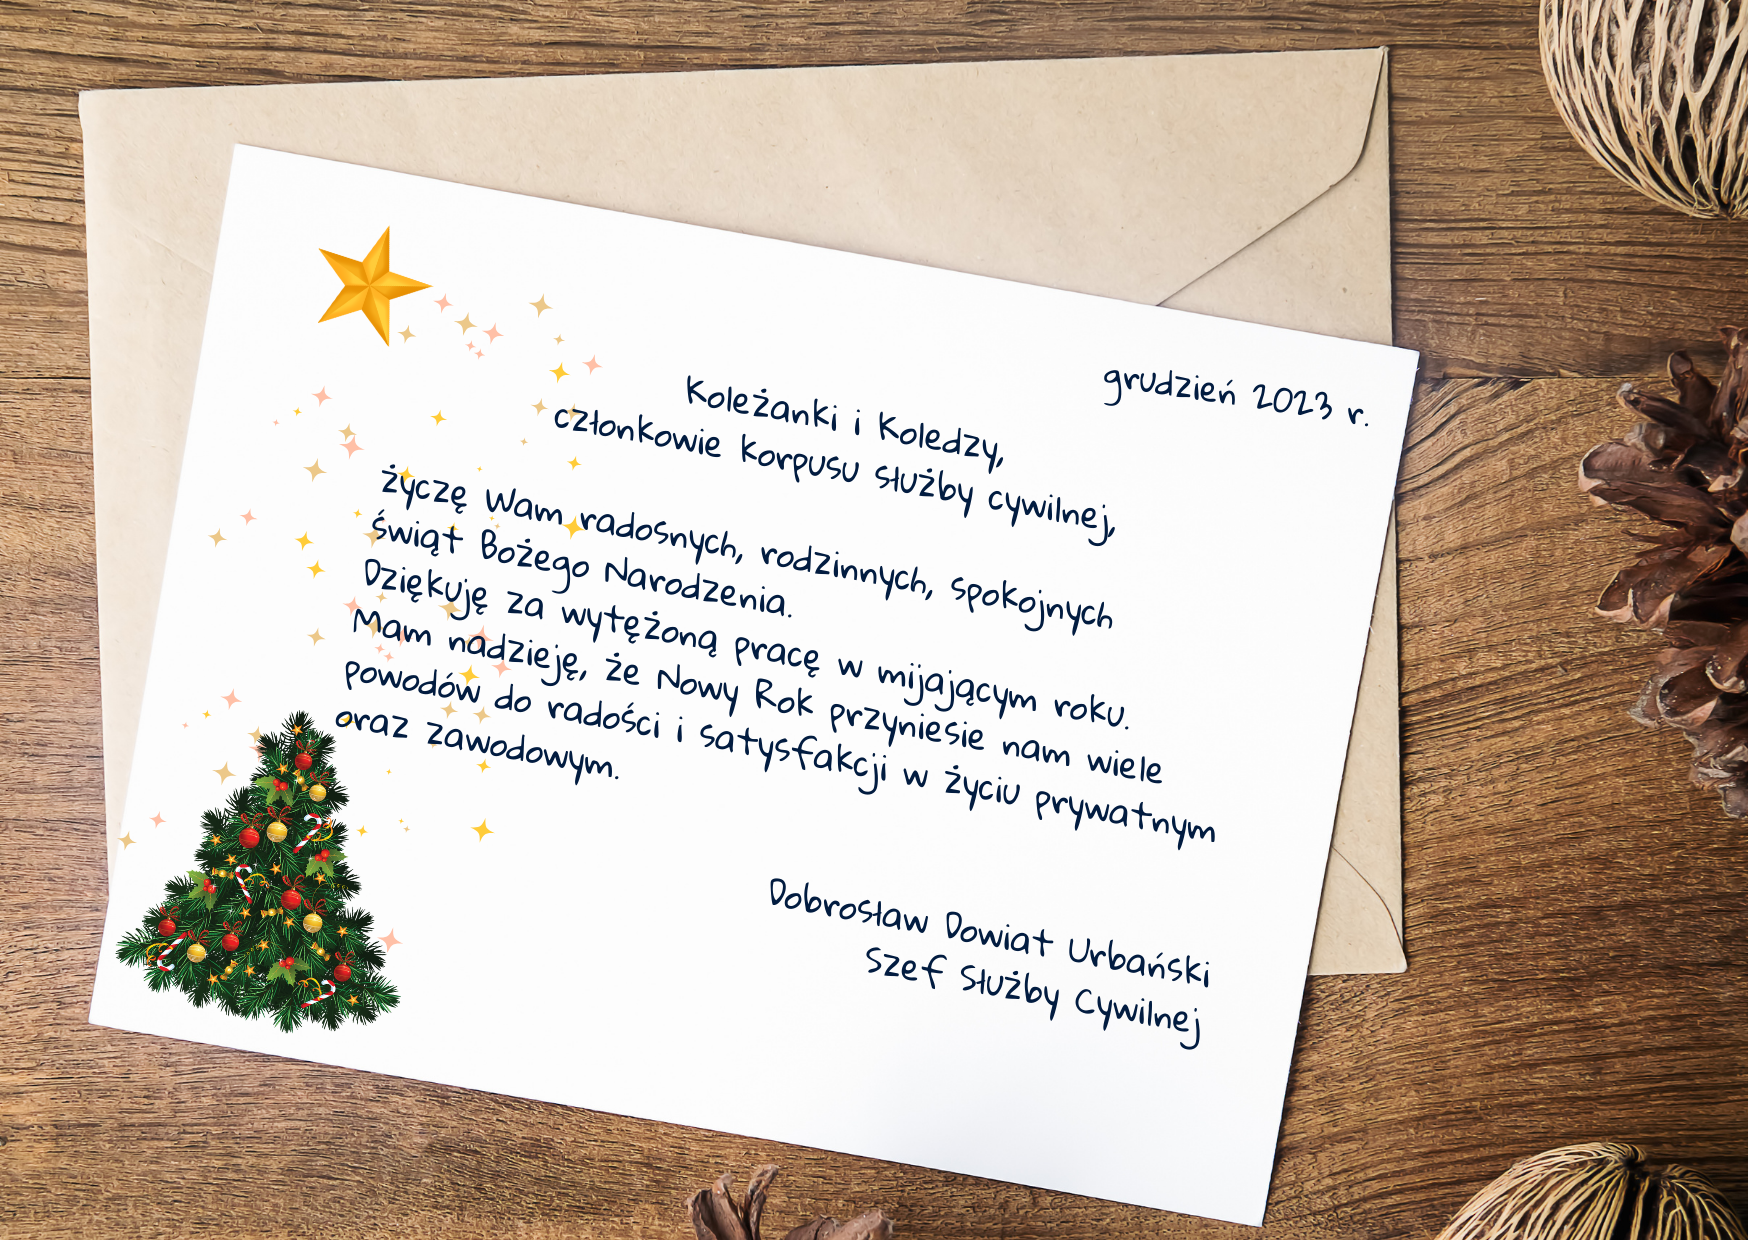 grudzień 2023 r.
Koleżanki i Koledzy,
członkowie korpusu służby cywilnej,
życzę Wam radosnych, rodzinnych, spokojnych
świąt Bożego Narodzenia.
Dziękuję za wytężoną pracę w mijającym roku.
Mam nadzieję, że Nowy Rok przyniesie nam wiele
powodów do radości i satysfakcji w życiu prywatnym
oraz zawodowym.
Dobrosław Dowiat Urbański
Szef Służby Cywilnej